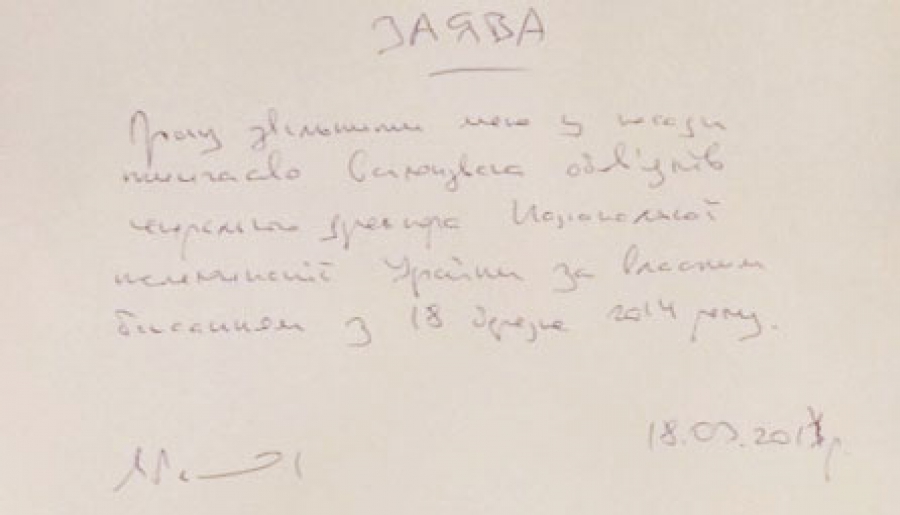 ЗАЯВА
Прошу звільнити мене з посади
тимчасово виконувача обов'язків
генерального директора Національної
телекомпанії України за власним
бажанням з 18 березня 2014 року.
18.03.2014р.